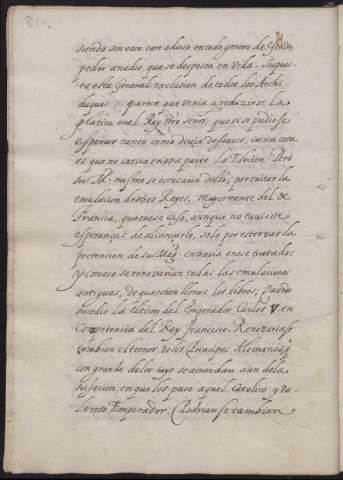 siendo sin esso tan adioso en todo genero de estado,
pedir anadie, que se desposea en Vida. Supues-
ta esta General exclusion de todos los Archi-
duques, parece que venia a reduzirse la
platica en el Rey nro señor, que si se pudiesse
esperar tanto como devia desearse, cierta cosa
es que no cabria en otra parte la Elecion. Pero
su Mg. mismo se escusaria dello, por evitar la
emulacion de otros Reyes, mayormente del de
Francia, que en ese caso, aunque no tuviesse
esperanças de alcançarlo, solo por estorvar la
pretension de su Magd. entraria en ese tratado:
y con eso se renovarian todas las emulaciones
antiguas, de que estan llenos los libros, Quando
sucedio la elecion del Emperador Carlos V. en
Competencia del Rey francisco. Renovariase
tambien el temor de los Principes Alemanes, q
con grande dolor suyo se acuerdan aun de la
sujecion, en que los puso aquel Catolico y Va-
leroso Emperador. Podrianse tambien